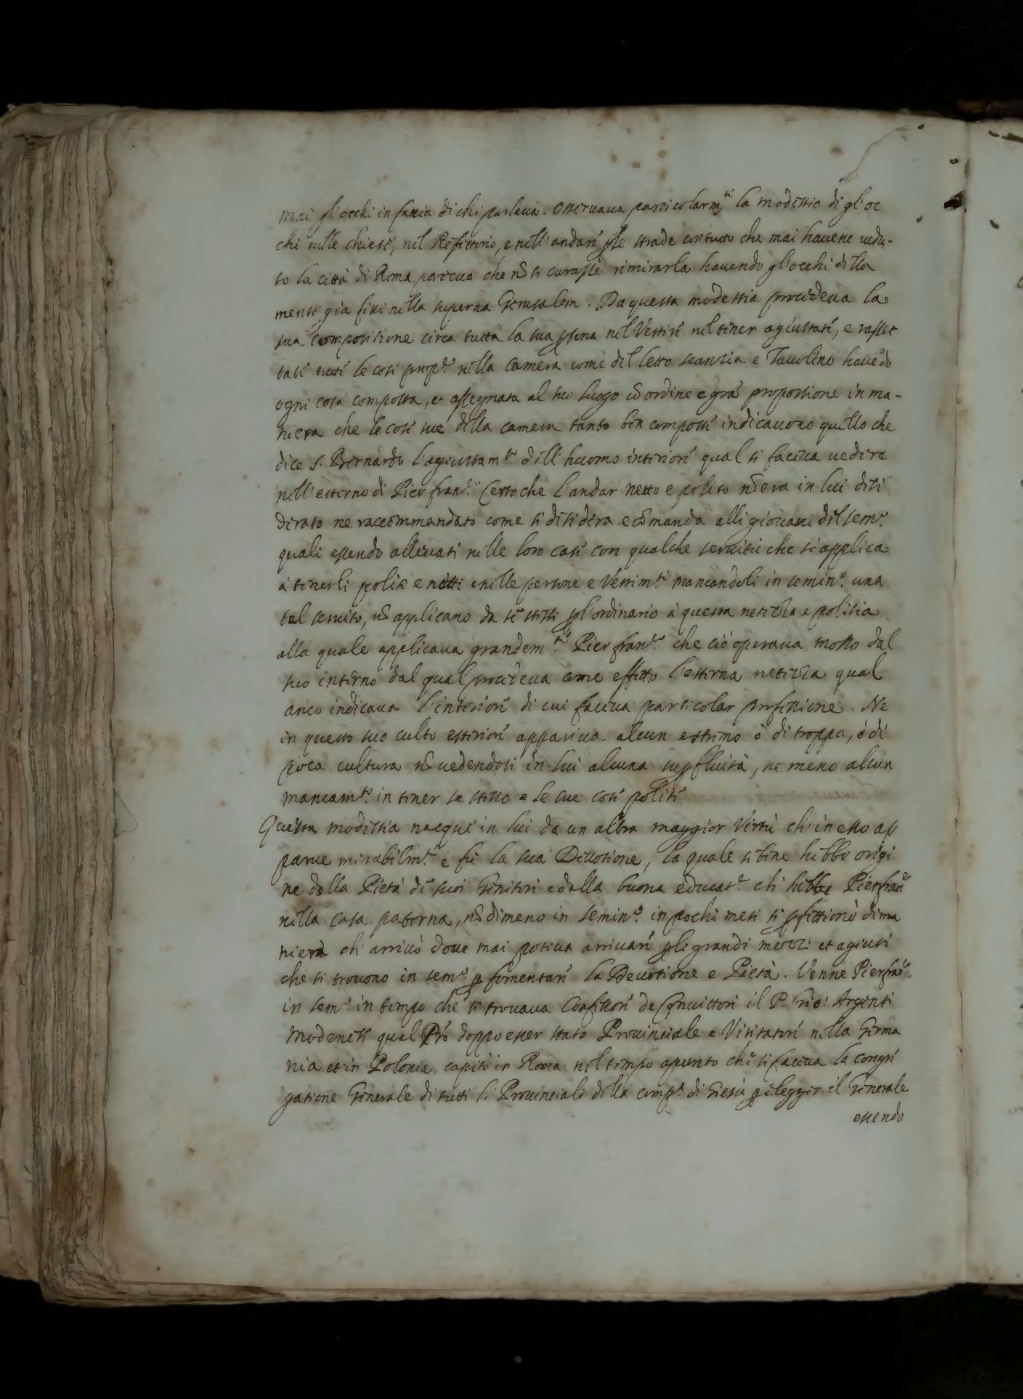 mai gl'occhi in faccia di chi parlava. Osservava particolarm.te la modestia di gl'oc
chi nelle chiese, nel Refettorio, e nell'andare p le strade con tutto che mai havesse vedu-
to la città di Roma, pareva che nõ si curasse rimirarla havendo gl'occhi della
mente già fissi nella superna Gerusalem. Da questa modestia procedeva la
sua compositione circa tutta la sua psona nel Vestire nel tener agiustate, e rasset
tate tutte le cose prop.e nella Camera come del letto scanzia e Tavolino havẽdo
ogni cosa composta, et assegnata al suo luogo cõ ordine e grã proportione in ma-
niera che le cose sue della camera tanto ben composte indicavono quello che
dice S. Bernardo l'agiustam.to dell'huomo interiore qual si faceva vedere
nell'esterno di Pier fran.co Certo che l'andar netto e polito nõ era in lui desi
derato ne raccommandato come si desidera e cõmanda alli giovani del sem.o
quali essendo allevati nelle loro case con qualche servitù che si applica
a tenerli polite e netti e nelle persone e Vestim.ti mancandoli in semin.o una
tal servitù, nõ applicano da se stessi p l'ordinario a questa netezza e politia
alla quale applicava grandem.te Pier fran.co che ciò operava mosso dal
suo interno dal qual procedeva come effetto l'esterna netezza qual
anco indicava l'interiore di cui faceva particolar professione. Ne
in questo suo culto esteriore appariva alcun estremo ò di troppa, ò di
poca cultura nõ vedendosi in lui alcuna supfluità, ne meno alcun
mancam.to in tener se stesso e le sue cose polite
Questa modestia nacque in lui da un altra maggior Virtù ch'in esso ap
parve mirabilm.te e fù la sua Devotione, la quale se bene hebbe origi
ne dalla Pietà de suoi Genitori e dalla buona educat.e ch'hebbe Pierfran.co
nella casa paterna, nõdimeno in semin.o in pochi mesi si pfettionò di ma
niera ch'arrivò dove mai poteva arrivare p li grandi mezzi et agiuti
che si trovono in sem.o p fomentare la Devotione e Pietà. Venne Pierfran.co
in sem.o in tempo che si trovava Confessore de Convittori il P. Gio: Argenti
Modenese qual Pre doppo esser stato Provinciale e Visitatore nella Germa
nia et in Polonia, capitò in Roma nel tempo apunto che si faceva la congre
gatione Generale di tutti li Provinciali della comp.a di Giesù p elegger il Generale
essendo